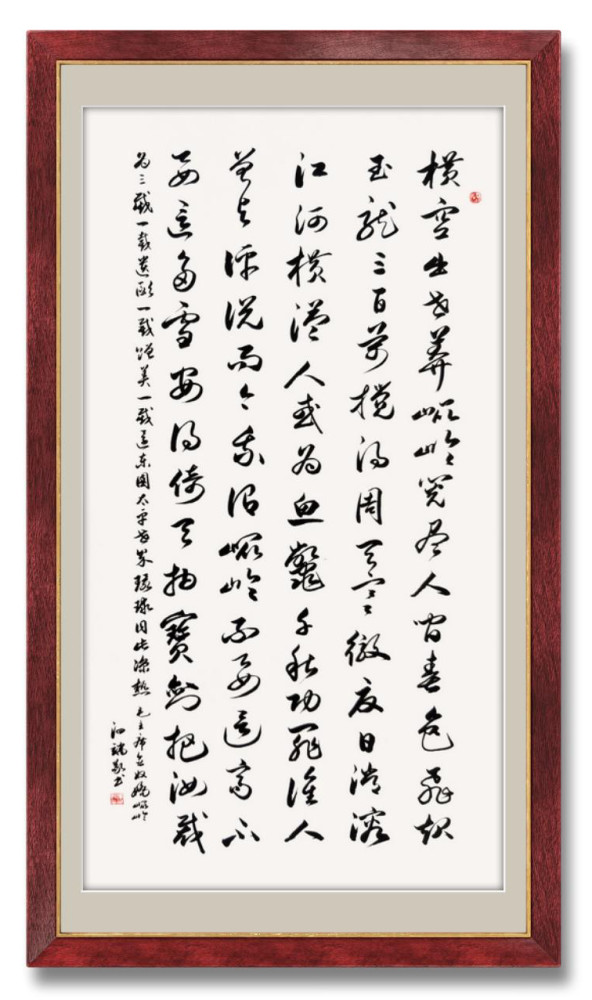 横空出世莽崐崘阅尽人间春色飞起
玉龍三百萬攪得周天寒徹夏日消溶
江河横溢人或为鱼鼈千秋功罪谁人
曾与评说而今我谓崐崘不要这高不
要这多雪安得倚天抽寶剑把汝裁
为三截一截遗欧一截赠美一截还东國太平世界环球同此凉热 毛主席念奴娇崐崘
书